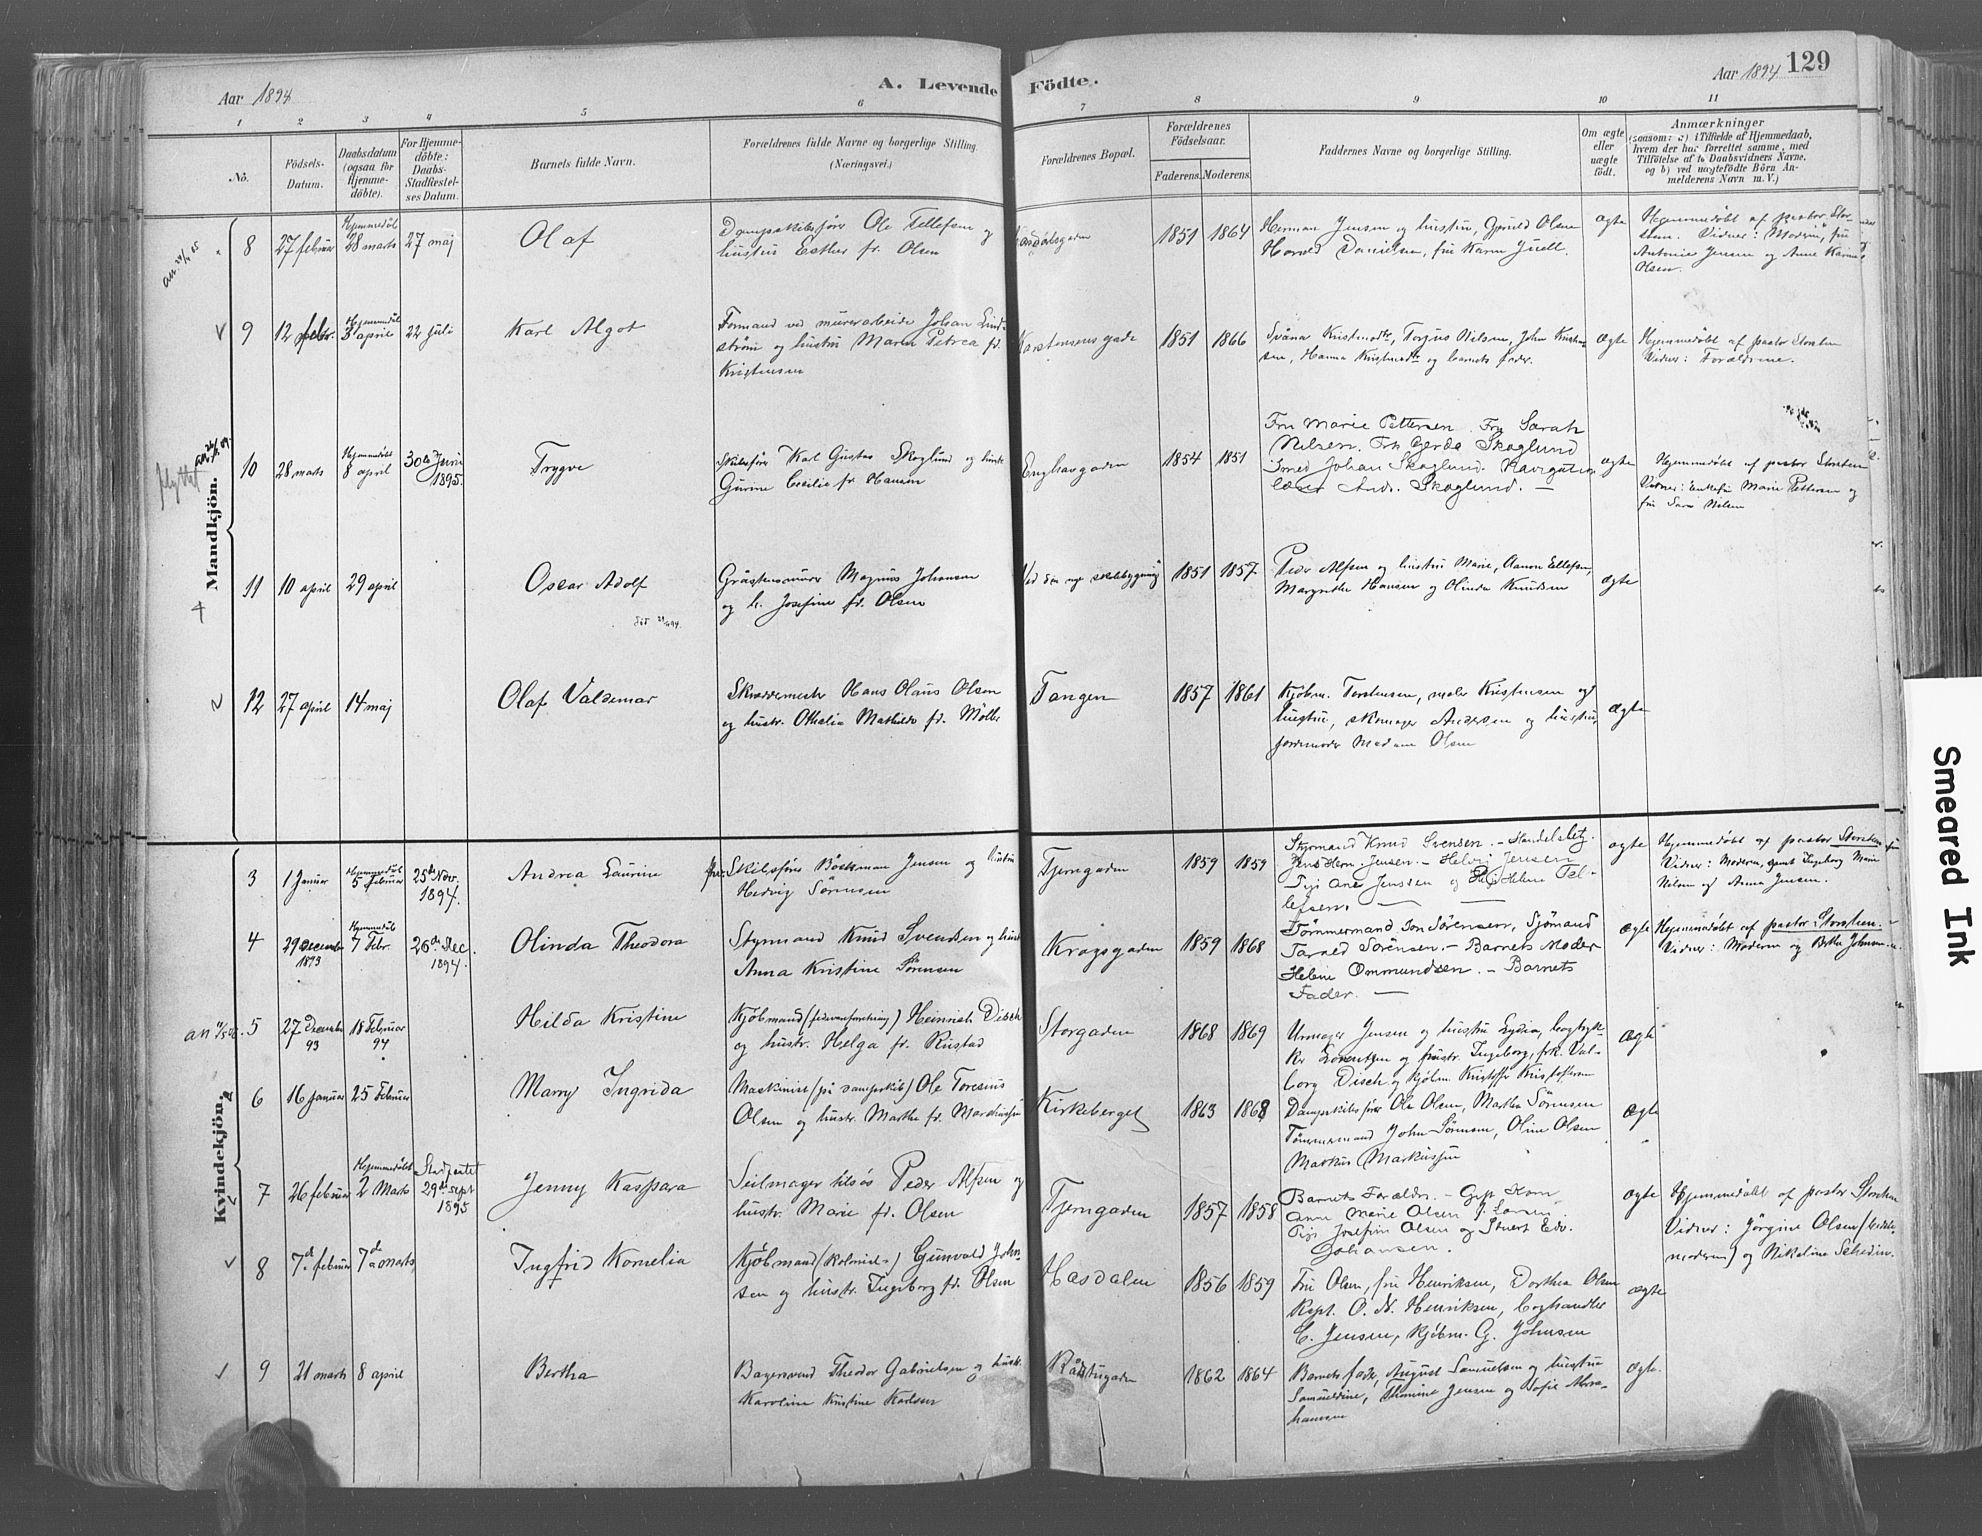 Aar 1894
A. Levende
Födte.
Aar 1894 129
1 2 3 4 5 6 7 8 9 10 11
No.
Födsels-
Datum.
Daabsdatum
(ogsaa for
Hjemme-
döbte).
For Hjemme-
döbte:
Daabs-
Stadfæstel-
ses Datum.
Barnets fulde Navn.
Forældrenes fulde Navne og borgerlige Stilling.
(Næringsvei.)
Forældrenes Bopæl.
Forældrenes
Födselsaar.
Faderens. Moderens.
Faddernes Navne og borgerlige Stilling.
Om ægte
eller
uægte
født.
Anmærkninger
(saasom: a) i Tilfælde af Hjemmedaab,
hvem der har forrettet samme, med
Tilföielse af to Daabsvidners Navne,
og b) ved uægtefödte Börn An-
melderens Navn m. V.)
Mandkjön.
8 27 februar Hjemmedöbt 28 marts 27 maj Olaf
Dampskibsförer Ole Tellefsen og
hustru Esther fr. Olsen
1851 1864
Herman Jensen og hustru, Gjeruld Olsen
Harald Danielsen, fru Karen Juell.
ægte
Hjemmedöbt af pastor Stor-
sten. Vidner: Moderen, fru
Antonie Jensen og Anne Karine
Olsen.
9 12 febr. Hjemmedöbt 3 april 22 juli Karl Algot
Formand ved murerarbeide Johan Lind-
ström og hustru Maren Petrea fr.
Kristensen
Karstensens gade 1851 1866
Torjus Nilsen, John Kristen-
sen, Hanna og barnets fader.
ægte
Hjemmedöbt af pastor Storsten
Vidner: Forældrene.
flyttet
10 28 marts Hjemmedöbt 8 april 30te Juni 1895. Trygve
Skibsförer Karl Gustav Skoglund og hustru
Gurine Cecilie fr. Hansen
Enghavgaden 1854 1851
Fru Marie Pettersen. Fru Sarah
Nilsen. Frk Gerda Skoglund
Smed Johan Skoglund. Navigations
læser Andr. Skoglund. —
ægte
Hjemmedöbt af pastor Storsten
Vidner: Enkefru Marie Pettersen og
fru Sara Nilsen
11 10 april 29 april Oscar Adolf
Magnus Johansen
og h. Josefine fr. Olsen
Ved den nye skolebygning 1851 1857
Peder Alfsen og hustru Marie, Aanon Ellefsen,
Margrethe Hansen og Olinda Knudsen
ægte
12 27 april 14 maj Olaf Valdemar
Skræddermester Hans Olaus Olsen
og hustr. Othalia Mathilde fr. Möller
Tangen 1857 1861
Kjöbm. Torstensen, maler Kristensen og
hustru, skomager Andersen og hustru,
jordemoder Madam Olsen
ægte
Kvindekjön.
3 1 Januar Hjemmedöbt 5 Februar 25de Nov. 1894. Andrea Laurine
Skibsförer Böckman Jensen og hustru
Hedvig Sörensen
Tjerngaden 1859 1859
Styrmand Knud Svensen. — Handelsbetj.
Jens Herm. Jensen. — Helvig Jensen
Pige Ane Jensen og Pige Helene Tel-
lefsen. —
ægte
Hjemmedöbt af pastor Storsten
Vidner: Moderen, samt Ingeborg Marie
Nilsen og Anna Jensen.
4 29 December 1893 Hjemmedöbt 7 Febr. 26de Dec. 1894. Olinda Theodora
Styrmand Knud Svendsen og hustru
Anna Kristine Sörensen
Kragsgaden 1859 1868
Tömmermand Jon Sörensen, Sjömand
Tarald Sörensen. — Barnets Moder
Helene Ommundsen. — Barnets
Fader. —
ægte
Hjemmedöbt af pastor Storsten.
Vidner: Moderen og
5 27 December 93 18 Februar 94 Hilda Kristine
Kjöbmand Heinrich Disch
og hustr. Helga fr. Rustad
Storgaden 1868 1869
Urmager Jensen og hustru Lydia, bogtryk-
ker Lorentzen og hustr. Ingeborg, frk. Val-
borg Disch og kjöbm. Kristoffer Kristoffersen
ægte
6 16 januar 25 Februar Marry Ingrida
Maskinist (på dampskib) Ole Toresius
Olsen og hustr. Marthe fr. Markussen
Kirkeberget 1863 1868
Dampskibsförer Ole Olsen, Marthe Sörensen
Tömmermand John Sörensen, Oline Olsen
Markus Markussen
ægte
7 26 februar Hjemmedöbt 2 Marts Stadfæstet 29de sept 1895 Jenny Kaspara
Seilmager tilsös Peder Alfsen og
hustr. Marie fr. Olsen
Tjerngaden 1857 1858
Barnets Forældre. — Gift Kone
Anne Marie Olsen
Pige Josefine Olsen og Stuert Edv.
Johansen.
ægte
Hjemmedöbt af pastor Storsten
Vidner: Jörgine Olsen (bedste-
moderen) og Nikoline Schedin.
8 7de februar 7de marts Ingfrid Kornelia
Kjöbmand (kolonial-) Gunvald John-
sen og hustr. Ingeborg fr. Olsen
Hasdalen 1856 1859
Fru Olsen, fru Henriksen, Dorthea Olsen
Kapt. O. N. Henriksen, boghandler
C. Jensen, kjöbm. G. Johnsen
ægte
9 21 marts 8 april Bertha
Bagersvend Theodor Gabrielsen og hustr.
Karoline Kristine Karlsen
Rådstugaden 1862 1864
Barnets fader, August Samuelsen og hustru
Samueldine, Thomine Jensen og Sofie Abra-
hamsen
ægte.
Smeared Ink